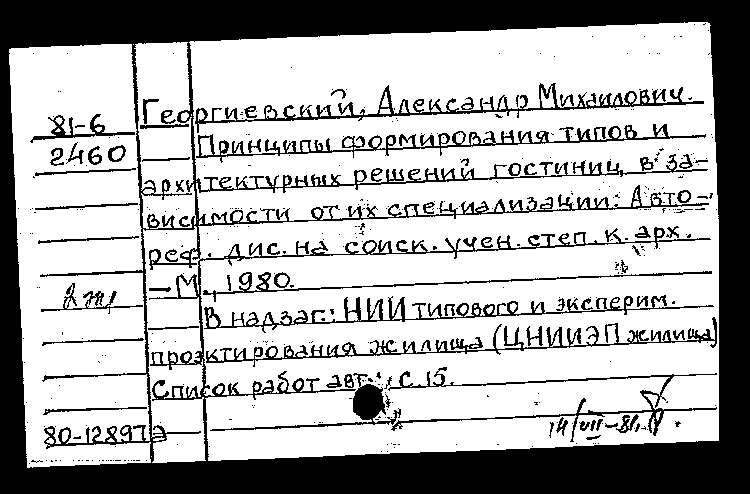 81-6
2460
Георгиевский, Александр Михайлович.
Принципы формирования типов и
архитектурных решений гостиниц в за-
висимости от их специализации: Авто-
реф. дис. на соиск. учен. степ. к. арх.
— М., 1980.
В надзаг.: НИИ типового и эксперим.
проектирования жилища (ЦНИИЭП жилища)
Список работ авт.: с. 15.
80-12897а
14/VII-81.